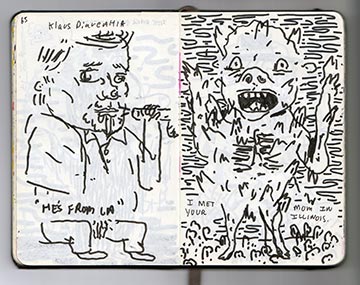 65
Klaus Diarenhia
"HE'S FROM LA"
I MET
YOUR
MOM IN
ILLINOIS.